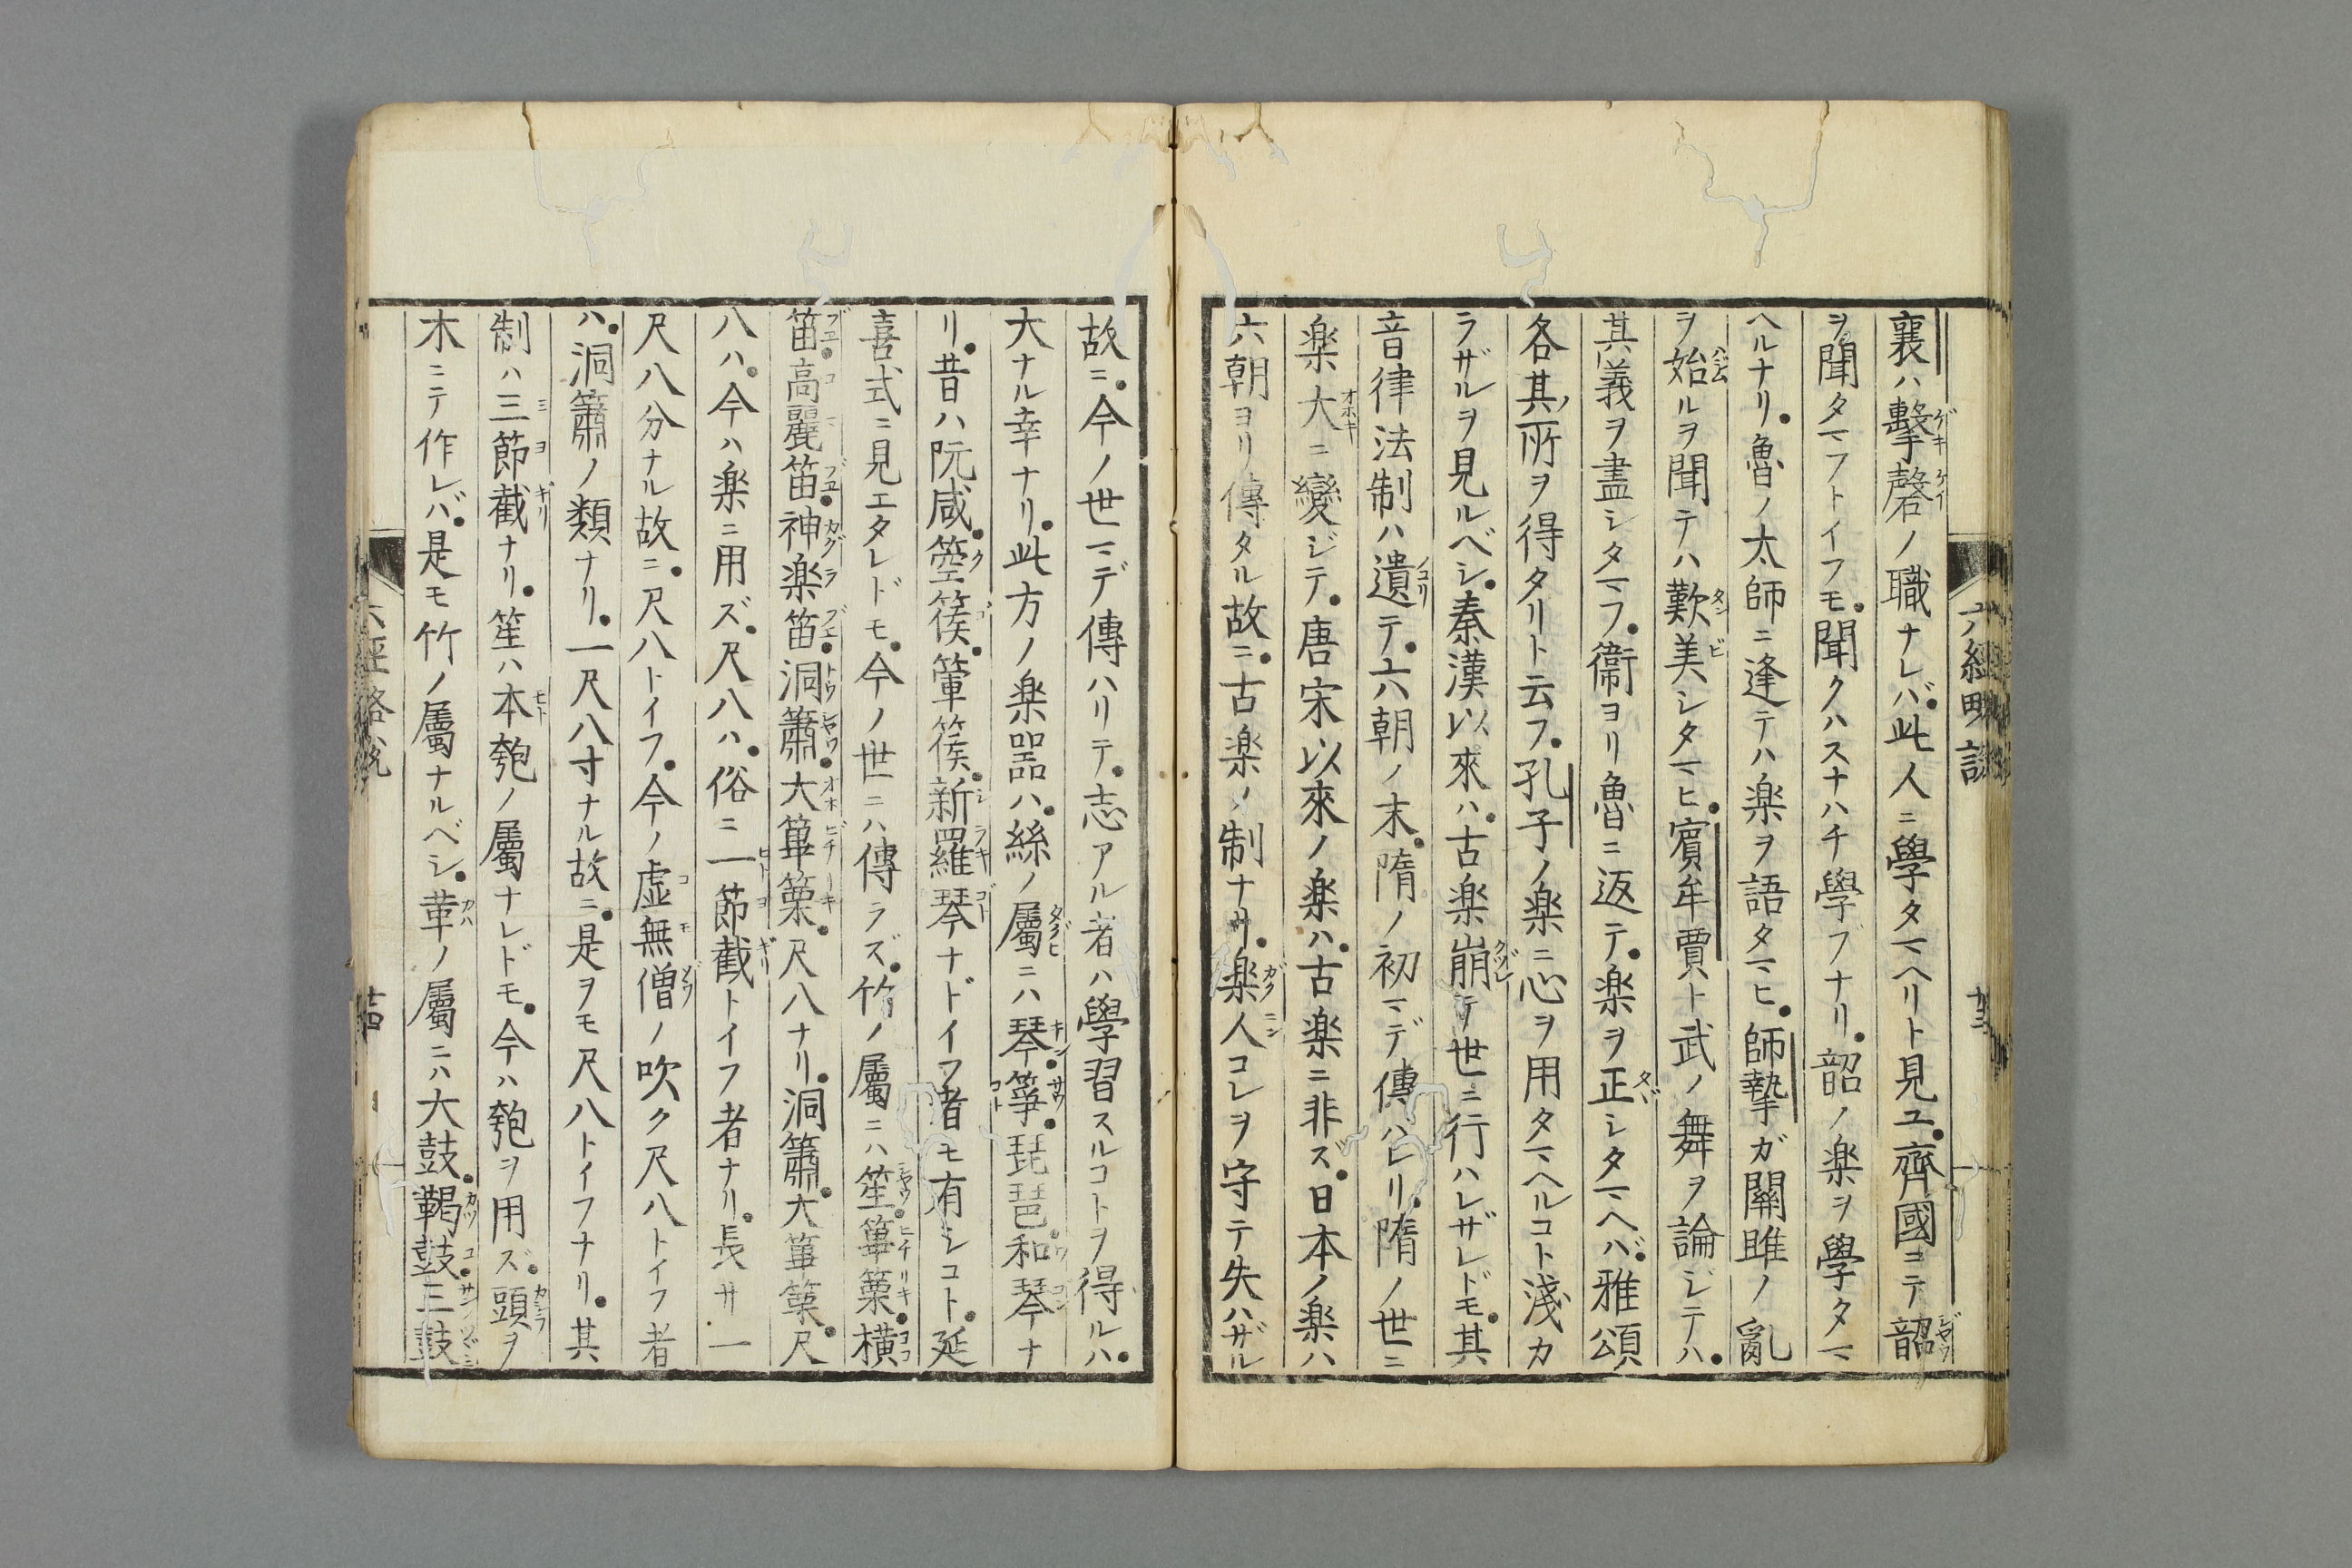 六經略説
十三
襄ハ擊磬ノ職ナレバ此人ニ學タマヘリト見ユ齊國ニテ韶
ヲ聞タマフトイフモ聞クハスナハチ學ブナリ韶ノ楽ヲ學タマ
ヘルナリ魯ノ太師ニ逢テハ楽ヲ語タマヒ師摯ガ關雎ノ亂
ヲ始ルヲ聞テハ歎美シタマヒ賓牟賈ト武ノ舞ヲ論ジテハ
其義ヲ盡シタマフ衞ヨリ魯ニ返テ楽ヲ正シタマヘバ雅頌
各其所ヲ得タリト云フ孔子ノ楽ニ心ヲ用タマヘルコト淺カ
ラザルヲ見ルベシ秦漢以來ハ古楽崩テ世ニ行ハレザレドモ其
音律法制ハ遺テ六朝ノ末隋ノ初マデ傳ハレリ隋ノ世ニ
楽大ニ變ジテ唐宋以來ノ楽ハ古楽ニ非ズ日本ノ楽ハ
六朝ヨリ傳タル故ニ古楽ノ制ナリ楽人コレヲ守テ失ハザル
故ニ今ノ世マデ傳ハリテ志アル者ハ學習スルコトヲ得ルハ
大ナル幸ナリ此方ノ楽器ハ絲ノ屬ニハ琴箏琵琶和琴ナ
リ昔ハ阮咸箜篌箪篌新羅琴ナドイフ者モ有シコト延
喜式ニ見エタレドモ今ノ世ニハ傳ラズ竹ノ屬ニハ笙篳篥横
笛高麗笛神楽笛洞簫大篳篥尺八ナリ洞簫大篳篥尺
八ハ今ハ楽ニ用ズ尺八ハ俗ニ一節截トイフ者ナリ長サ一
尺八分ナル故ニ尺八トイフ今ノ虚無僧ノ吹ク尺八トイフ者
ハ洞簫ノ類ナリ一尺八寸ナル故ニ是ヲモ尺八トイフナリ其
制ハ三節截ナリ笙ハ本匏ノ屬ナレドモ今ハ匏ヲ用ズ頭ヲ
木ニテ作レバ是モ竹ノ屬ナルベシ革ノ屬ニハ大鼓鞨鼓三鼓
六經略説
十四